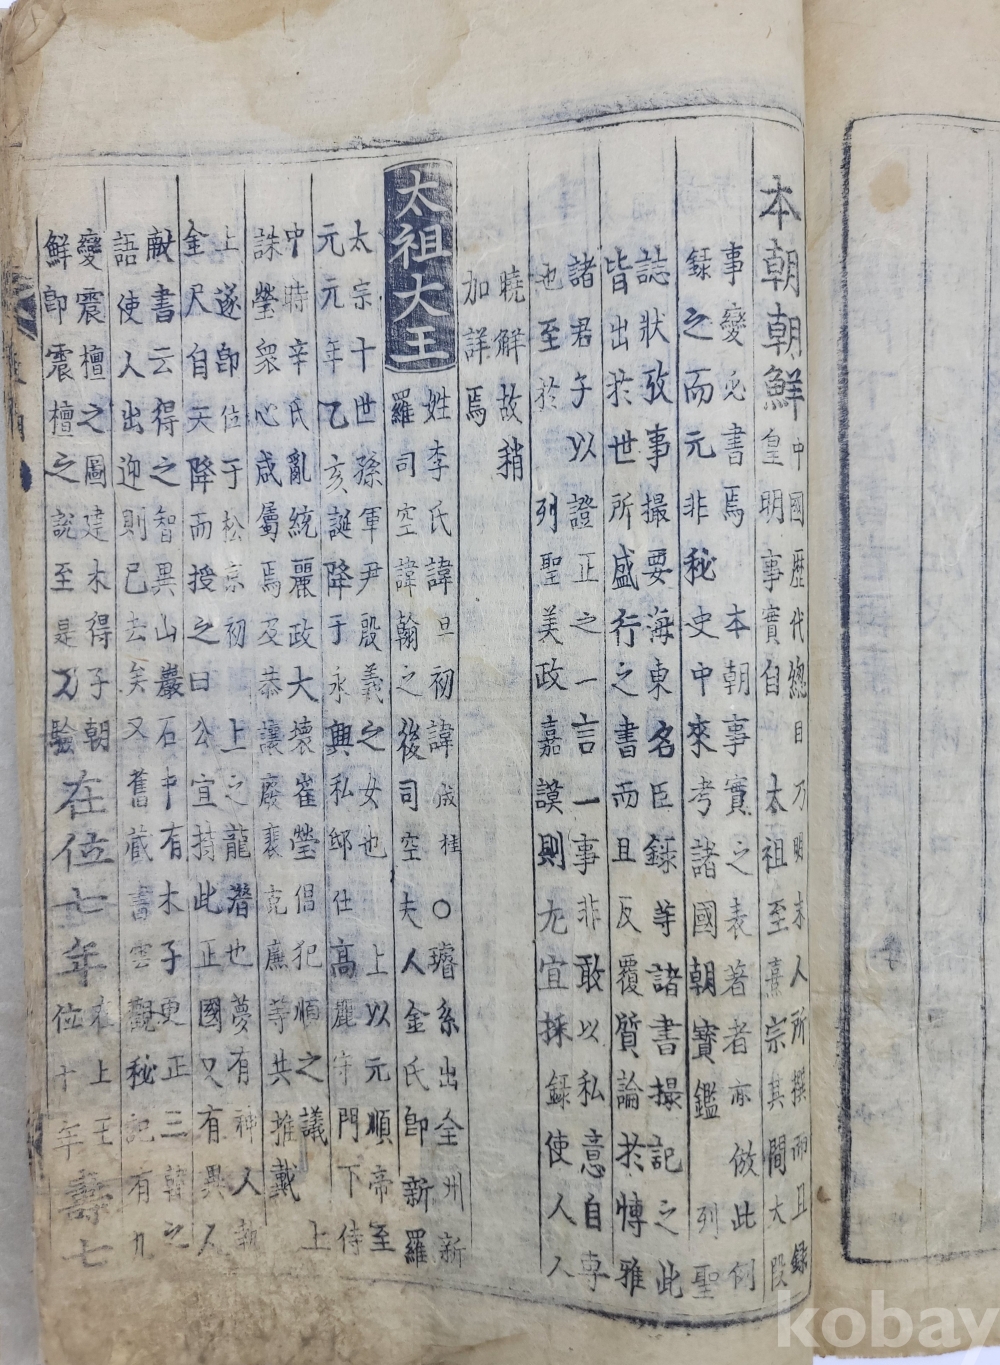 本朝朝鮮
中國歷代總目乃明末人所撰而且錄
皇明事實自　太祖至熹宗其間大段
事變必書焉　本朝事實之表著者亦倣此例
錄之而元非秘史中來考諸國朝寶鑑　列聖
誌狀攷事撮要海東名臣錄等諸書撮記之此
皆出於世所盛行之書而且反覆質論於博雅
諸君子以證正之一言一事非敢以私意自專
也至於　列聖美政嘉謨則尤宜採錄使人人
曉解故稍
加詳焉
太祖大王
姓李氏諱旦初諱成桂○璿系出全州新
羅司空諱翰之後司空夫人金氏卽新羅
太宗十世孫軍尹殷義之女也　上以元順帝至
元元年乙亥誕降于永興私邸仕高麗守門下侍
中時辛氏亂統麗政大壞崔瑩倡犯順之議　上
誅瑩衆心咸屬焉及恭讓廢裵克廉等共推戴
上遂卽位于松京初　上之龍潛也夢有神人執
金尺自天降而授之曰公宜持此正國又有異人
獻書云得之智異山巖石中有木子更正三韓之
語使人出迎則已去矣又舊藏書雲觀秘記有九
變震檀之圖建木得子朝
鮮卽震檀之說至是乃驗
在位七年
在上王
位十年
壽七
kobay